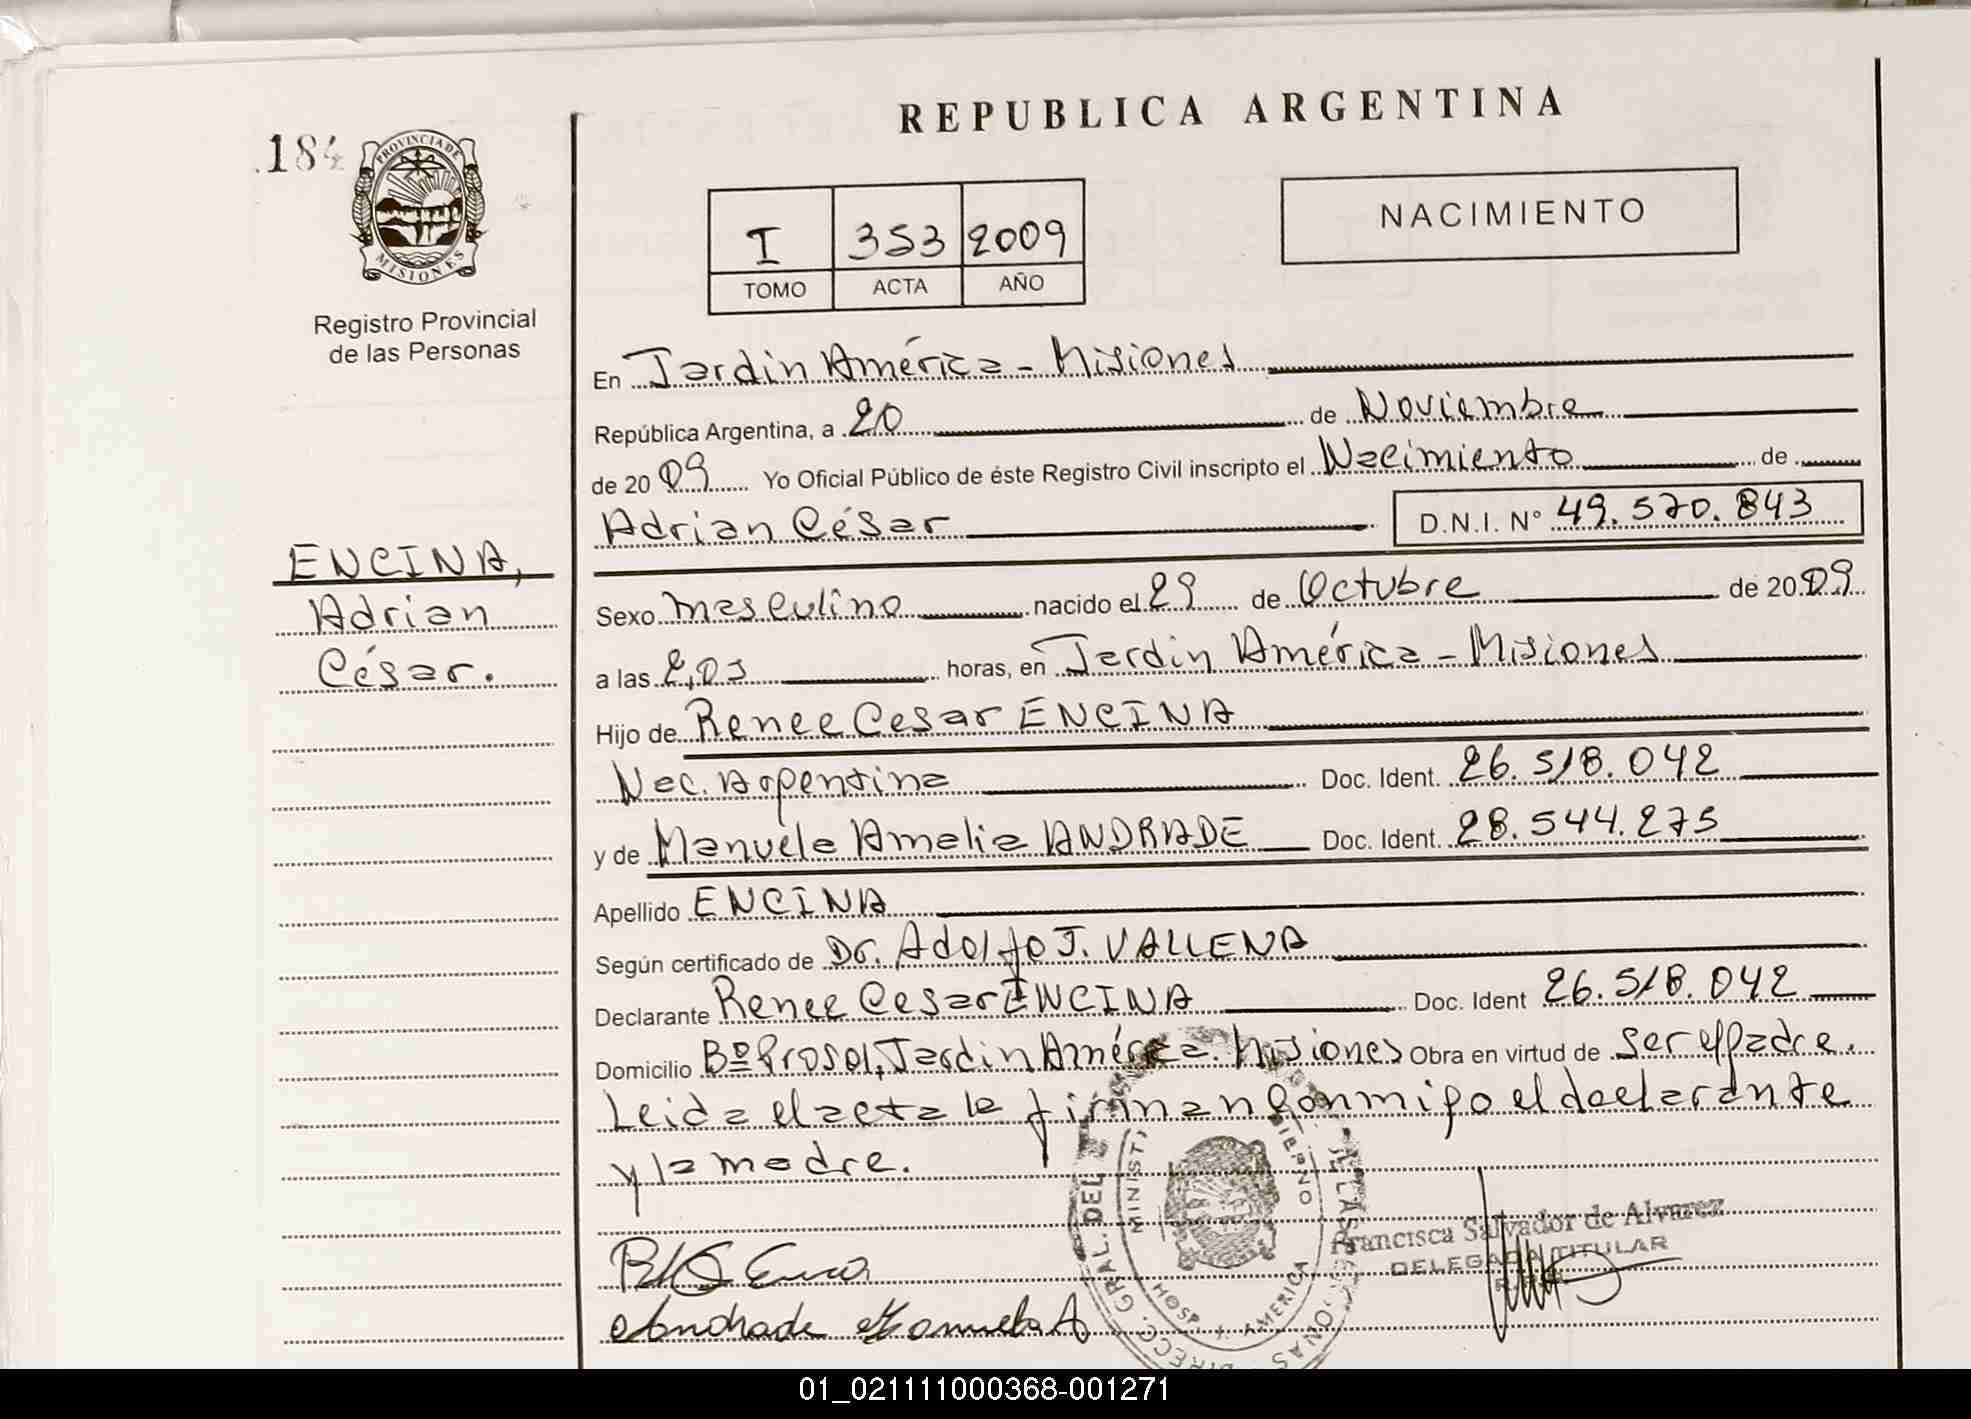 REPUBLICA ARGENTINA
184
PROVINCIA DE MISIONES
Registro Provincial
de las Personas
I 353 2009
TOMO ACTA AÑO
NACIMIENTO
ENCINA,
Adrian
César.
En Jardin América - Misiones
República Argentina, a 20 de Noviembre
de 2009 Yo Oficial Público de éste Registro Civil inscripto el Nacimiento de
Adrian César D.N.I. N° 49.570.843
Sexo masculino nacido el 29 de Octubre de 2009
a las 2,05 horas, en Jardin América - Misiones
Hijo de Renee Cesar ENCINA
Nac. Argentina Doc. Ident. 26.518.042
y de Manuela Amelia ANDRADE Doc. Ident. 28.544.275
Apellido ENCINA
Según certificado de Dr. Adolfo J. VALLENA
Declarante Renee Cesar ENCINA Doc. Ident 26.518.042
Domicilio Bº Prosol, Jardin América. Misiones Obra en virtud de ser el padre.
Leida el acta la firman conmigo el declarante
y la madre.
Francisca Salvador de Alvarez
DELEGADA TITULAR
Andrade Manuela A
DIRECC. GRAL. DEL
MINIST
HOSP. AMERICA
01_021111000368-001271